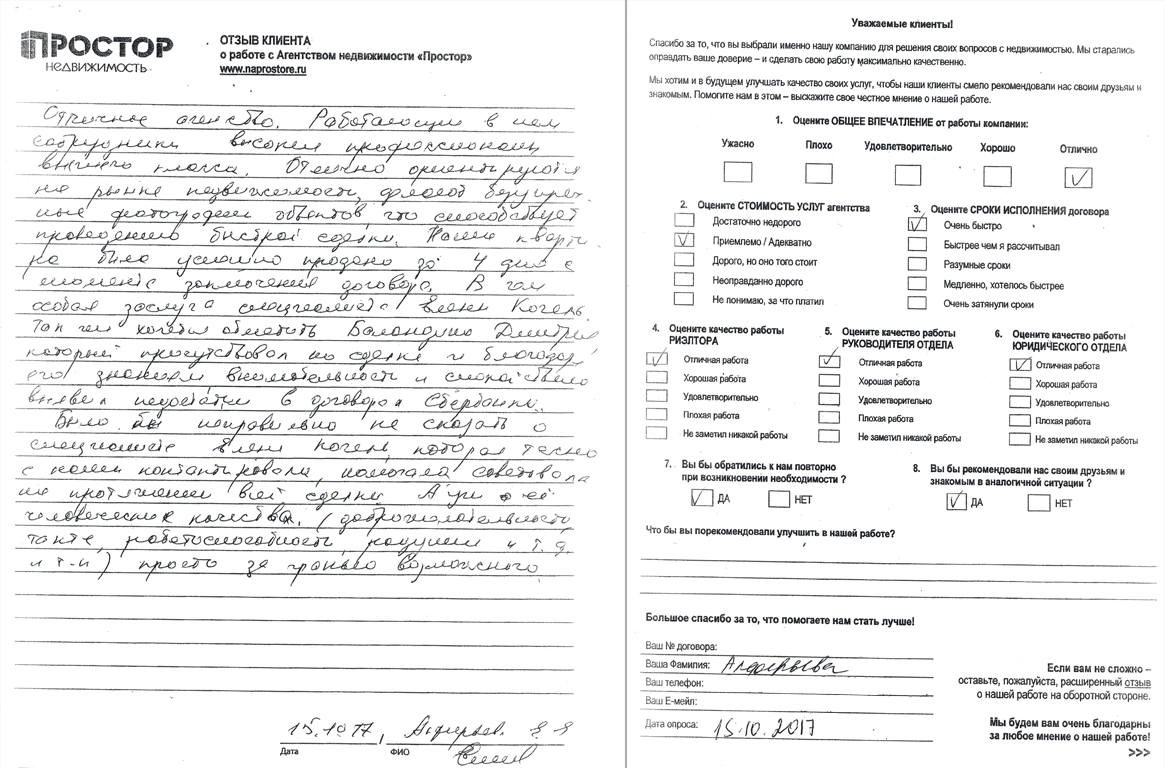 ПРОСТОР
НЕДВИЖИМОСТЬ
ОТЗЫВ КЛИЕНТА
о работе с Агентством недвижимости «Простор»
www.naprostore.ru
Отличное агенство. Работающие в нем
сотрудники высокие профессионалы
высшего класса. Отлично ориентируются
на рынке недвижимости, делают безупреч-
ные фотографии объектов, что способствует
проведению быстрой сделки. Наша кварти-
ра была успешно продана за 4 дня с
момента заключения договора. В том
особая заслуга специалиста Елены Когель.
Так же хочется отметить Баландина Дмитрия
который присутствовал на сделке и благодаря
его знаниям внимательности и спокойствию
выявил недостатки в договоре Сбербанка.
Было бы неправильно не сказать о
специалисте Елене Когель, которая тесно
с нами контактировала, помогала советовала
на протяжении всей сделки. А уж о её
человеческих качествах (доброжелательность,
такте, работоспособность, и т.д.
и т.п) просто за гранью возможного
15.10 17,
Дата
ФИО
Уважаемые клиенты!
Спасибо за то, что вы выбрали именно нашу компанию для решения своих вопросов с недвижимостью. Мы старались
оправдать ваше доверие – и сделать свою работу максимально качественно.
Мы хотим и в будущем улучшать качество своих услуг, чтобы наши клиенты смело рекомендовали нас своим друзьям и
знакомым. Помогите нам в этом – выскажите свое честное мнение о нашей работе.
1. Оцените ОБЩЕЕ ВПЕЧАТЛЕНИЕ от работы компании:
Ужасно Плохо Удовлетворительно Хорошо Отлично
2. Оцените СТОИМОСТЬ УСЛУГ агентства
Достаточно недорого
Приемлемо / Адекватно
Дорого, но оно того стоит
Неоправданно дорого
Не понимаю, за что платил
3. Оцените СРОКИ ИСПОЛНЕНИЯ договора
Очень быстро
Быстрее чем я рассчитывал
Разумные сроки
Медленно, хотелось быстрее
Очень затянули сроки
4. Оцените качество работы
РИЭЛТОРА
Отличная работа
Хорошая работа
Удовлетворительно
Плохая работа
Не заметил никакой работы
5. Оцените качество работы
РУКОВОДИТЕЛЯ ОТДЕЛА
Отличная работа
Хорошая работа
Удовлетворительно
Плохая работа
Не заметил никакой работы
6. Оцените качество работы
ЮРИДИЧЕСКОГО ОТДЕЛА
Отличная работа
Хорошая работа
Удовлетворительно
Плохая работа
Не заметил никакой работы
7. Вы бы обратились к нам повторно
при возникновении необходимости ?
ДА НЕТ
8. Вы бы рекомендовали нас своим друзьям и
знакомым в аналогичной ситуации ?
ДА НЕТ
Что бы вы порекомендовали улучшить в нашей работе?
Большое спасибо за то, что помогаете нам стать лучше!
Ваш № договора:
Ваша Фамилия:
Ваш телефон:
Ваш E-мейл:
Дата опроса: 15.10.2017
Если вам не сложно –
оставьте, пожалуйста, расширенный отзыв
о нашей работе на оборотной стороне.
Мы будем вам очень благодарны
за любое мнение о нашей работе!
>>>